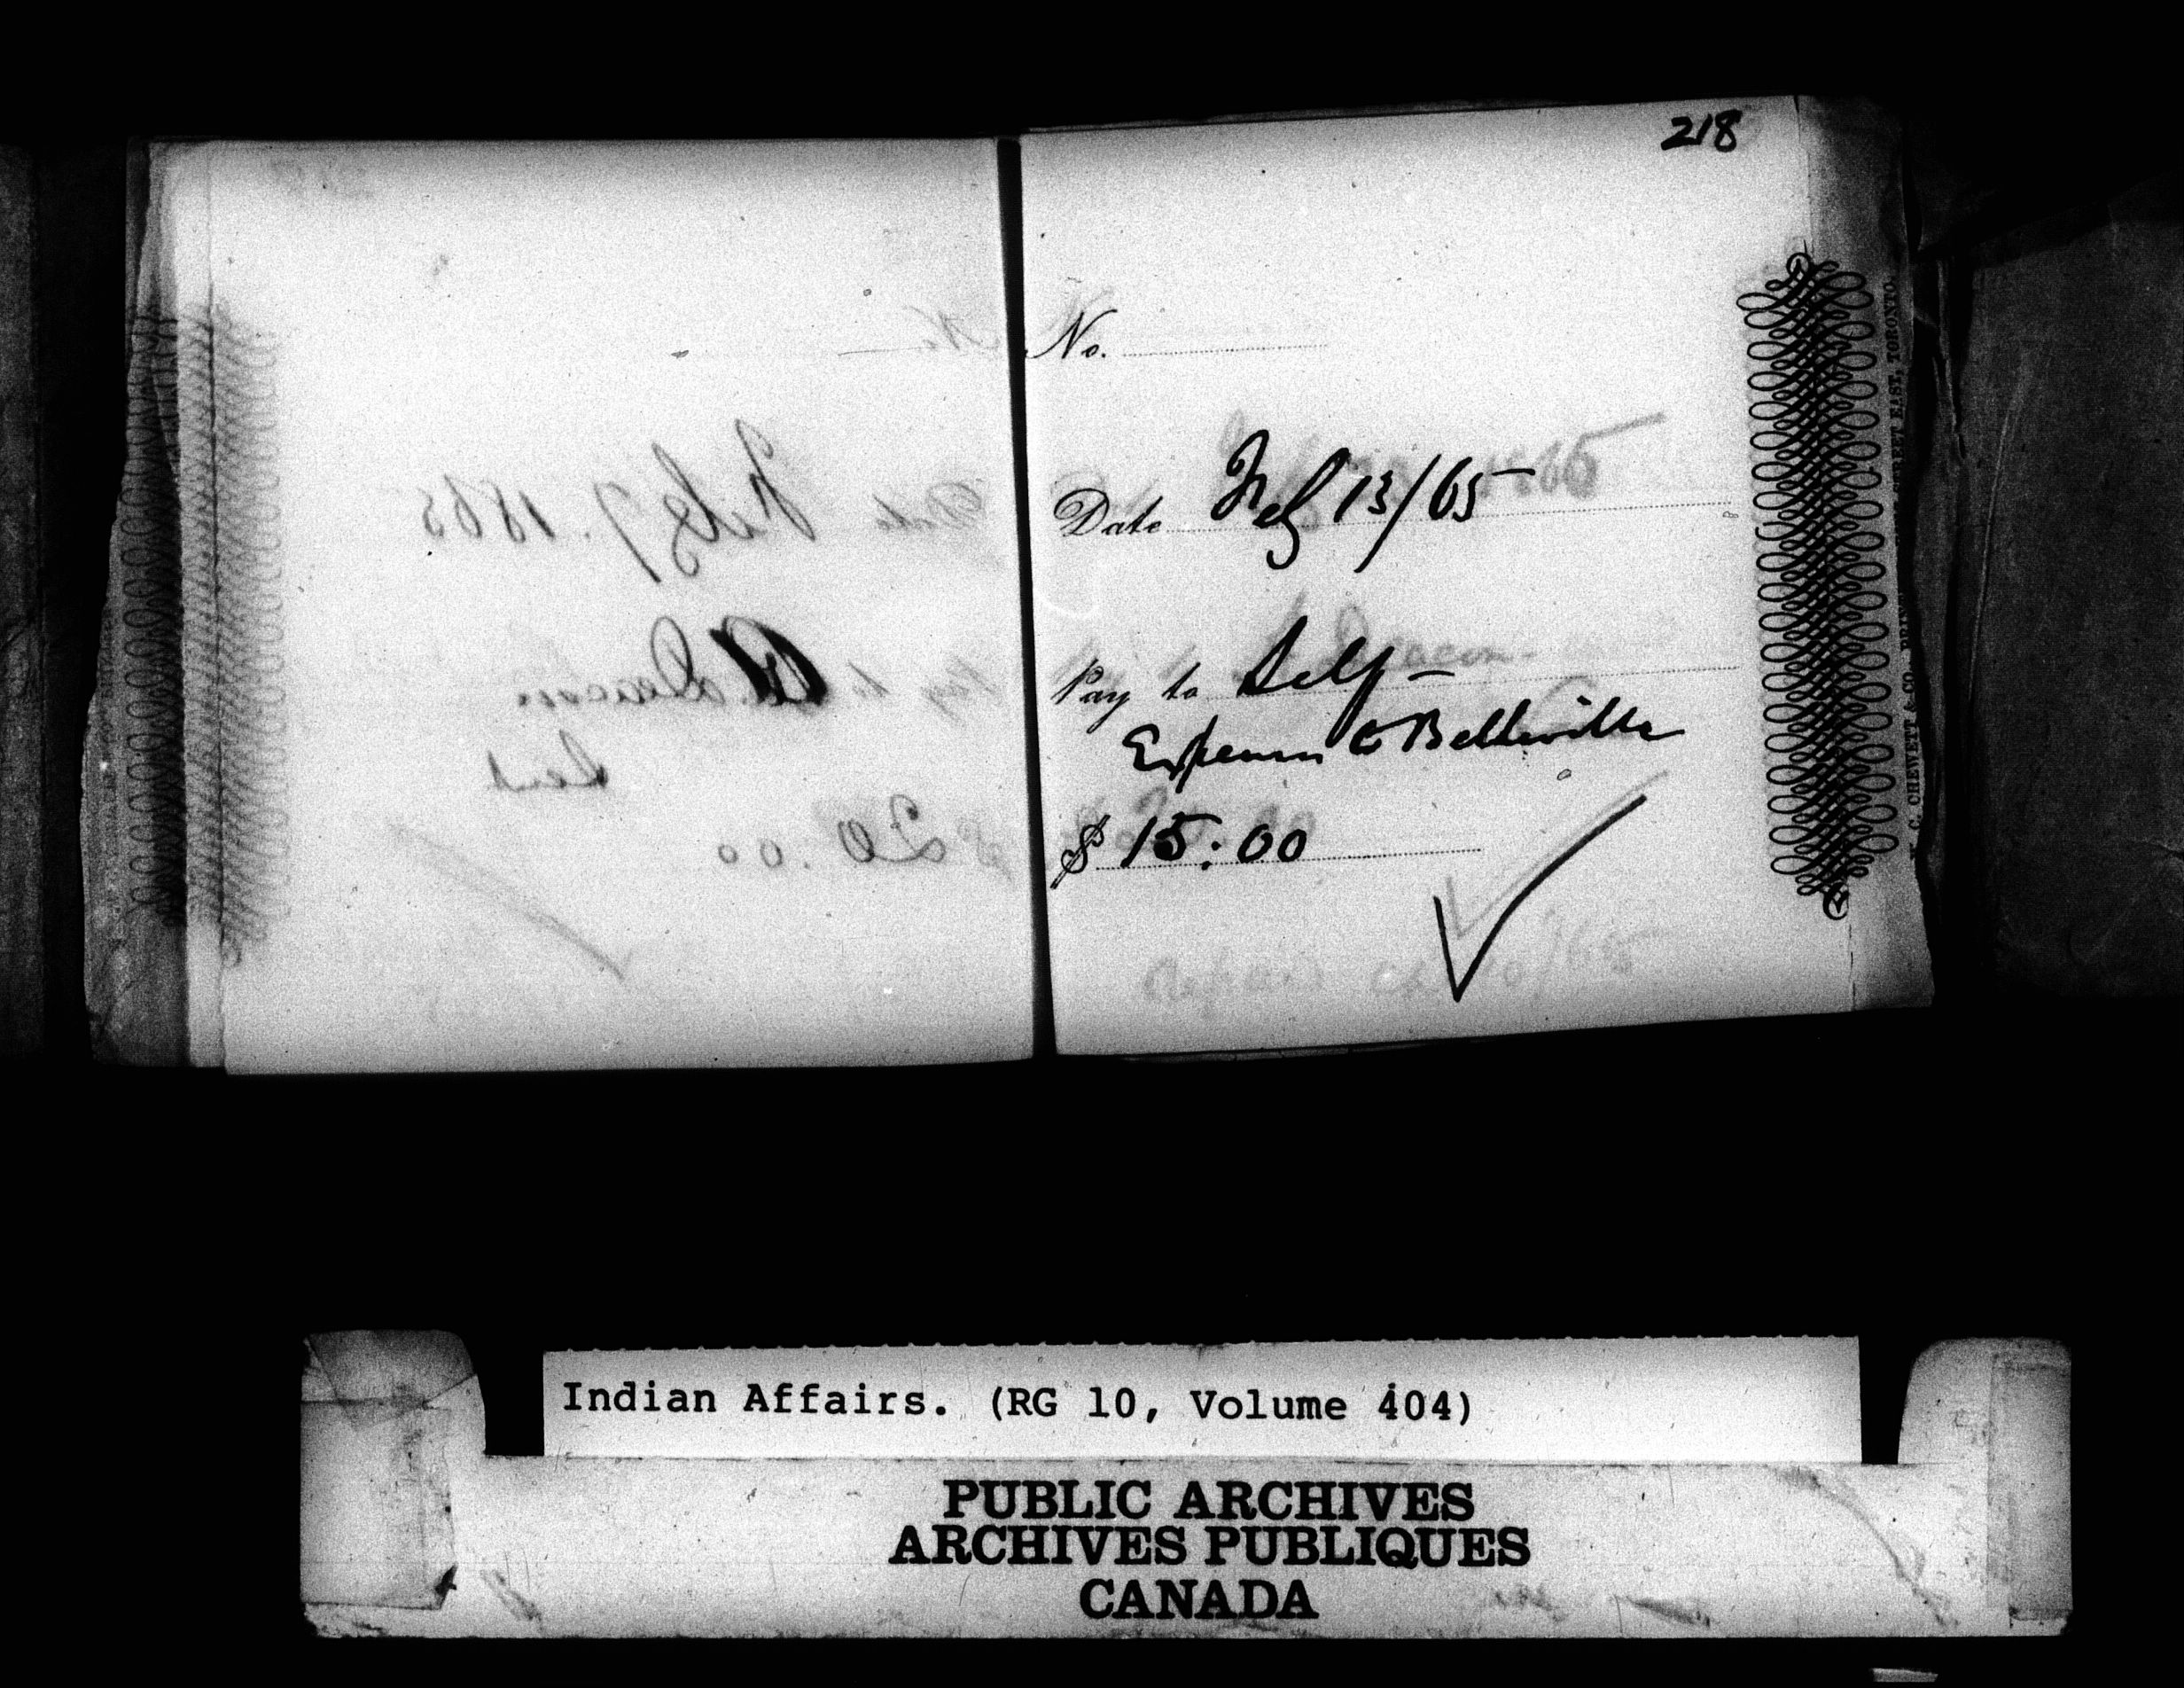 218
No.
Date Feb 13/65
Pay to Self -
Expenses to Belleville
$ 15:00
Date Feby 7. 1865
Pay to Deacon
$ 20.00
W. C. CHEWETT & CO. STREET EAST, TORONTO.
Indian Affairs. (RG 10, Volume 404)
PUBLIC ARCHIVES
ARCHIVES PUBLIQUES
CANADA